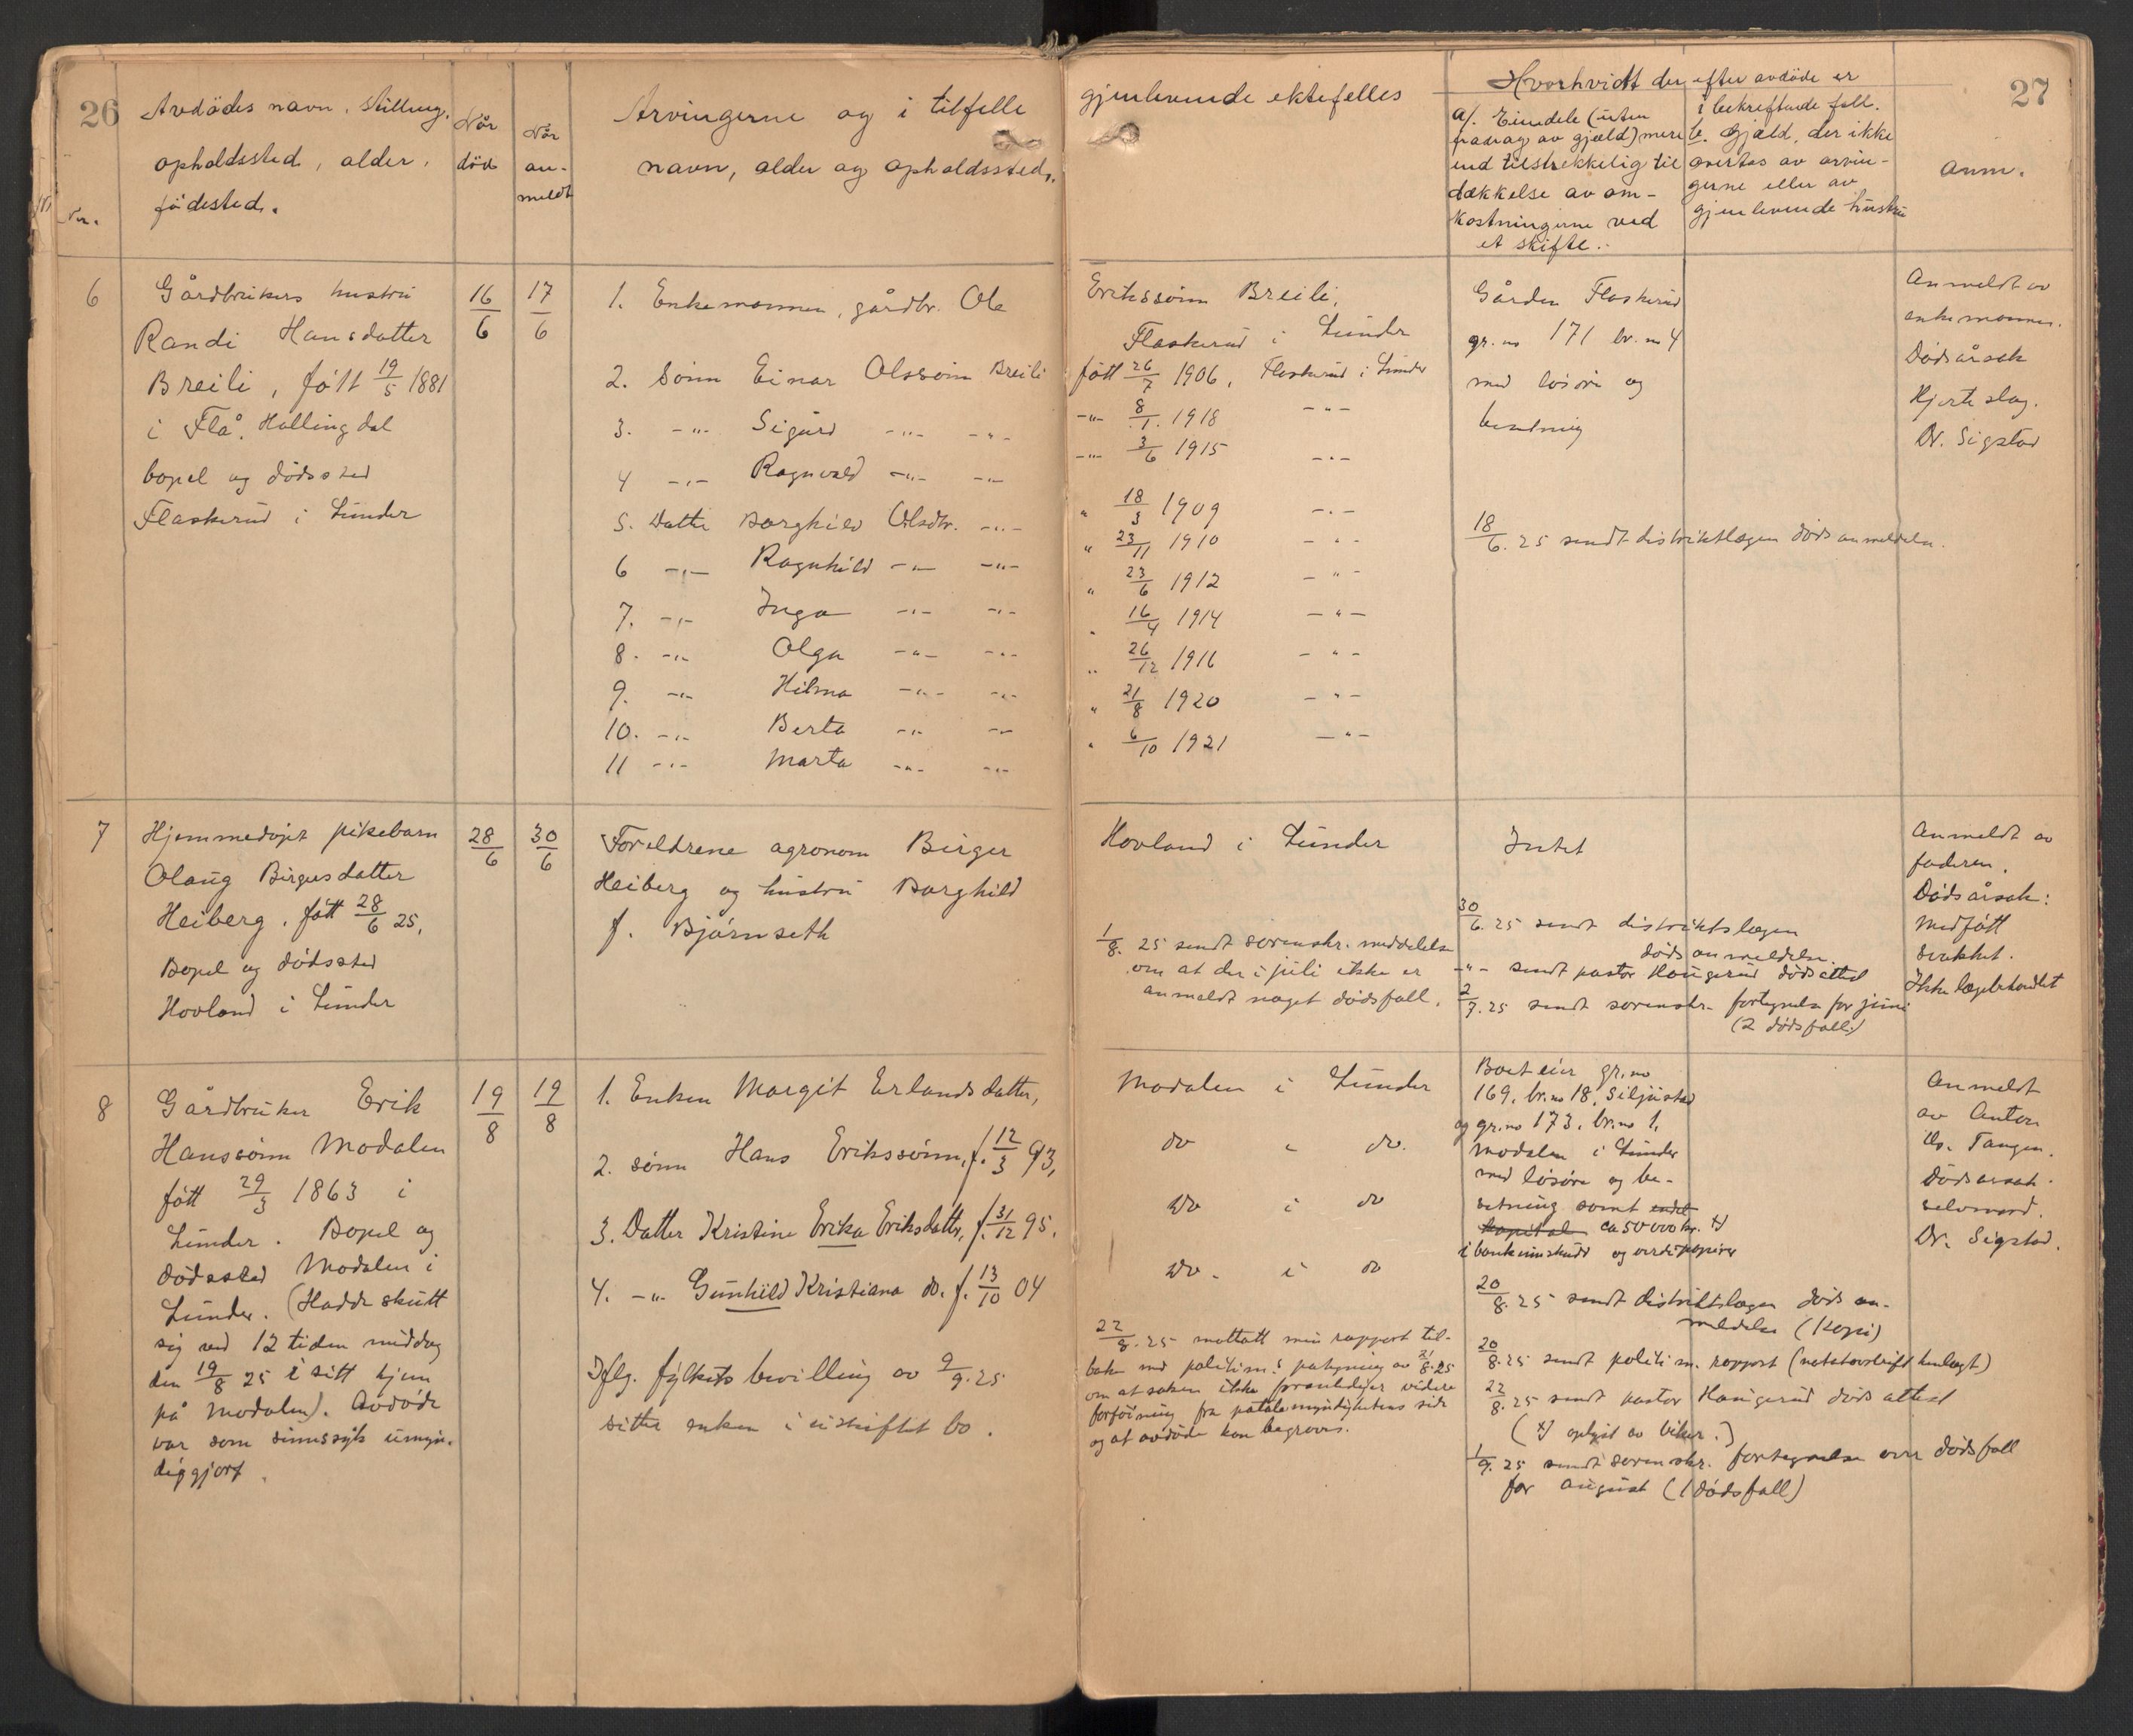 26
Avdødes navn, stilling,
opholdssted, alder,
fødested.
Nr.
Når
død
Når
an-
meldt
Arvingerne og i tilfelle
navn, alder og opholdssted.
gjenlevende ektefelles
Hvorhvidt der efter avdøde er
a/. Eiendele (uten
fradrag av gjæld) mere
end tilstrekkelig til
dækkelse av om-
kostningerne ved
et skifte.
i bekreftende fall.
b. Gjæld, der ikke
overtas av arvin-
gerne eller av
gjenlevende hustru
27
Anm.
6
Gårdbrukers hustru
Randi Hansdatter
Breili, født 19/5 1881
i Flå, Hallingdal
bopel og dødssted
Flaskerud i Lunder
16/6
17/6
1. Enkemannen, gårdbr. Ole
2. Sønn Einar Olssønn Breili
3. -"- Sigurd -"- -"-
4 -"- Ragnvald -"- -"-
5. Datte Borghild Olsdtr. -"-
6 -"- Ragnhild -"- -"-
7. -"- Inga -"- -"-
8. -"- Olga -"- -"-
9. -"- Hilma -"- -"-
10. -"- Berta -"- -"-
11 -"- Marta -"- -"-
Erikssønn Breili,
Flaskerud i Lunder
født 26/7 1906, Flaskerud i Lunder
-"- 8/1. 1918 -"-
-"- 3/6 1915 -"-
" 18/3 1909 -"-
" 23/11 1910 -"-
" 23/6 1912 -"-
" 16/4 1914 -"-
" 26/12 1916 -"-
" 21/8 1920 -"-
" 6/10 1921 -"-
Gården Flaskerud
gr. no 171 br. no 4
med løsøre og
besetning
18/6. 25 sendt distriktlægen dødsanmeldelse.
Anmeldt av
enkemannen.
Dødsårsak
Hjerteslag.
Dr. Sigstad
7
Hjemmedøpt pikebarn
Olaug Birgersdatter
Heiberg, født 28/6 25,
Bopel og dødssted
Hovland i Lunder
28/6
30/6
Foreldrene agronom Birger
Heiberg og hustru Borghild
f. Bjørnseth
Hovland i Lunder
1/8. 25 sendt sorenskr. meddelelse
om at der i juli ikke er
anmeldt noget dødsfall.
Intet
30/6. 25 sendt distriktslægen
dødsanmeldelse.
-"- sendt pastor Haugerud dødsattest
2/7. 25 sendt sorenskr. fortegnelse for juni
(2 dødsfall)
Anmeldt av
faderen.
Dødsårsak:
Medfødt
svakhet.
Ikke lægebehandlet
8
Gårdbruker Erik
Hanssønn Modalen
født 29/3 1863 i
Lunder. Bopel og
dødssted Modalen i
Lunder. (Hadde skutt
sig ved 12 tiden middag
den 19/8 25 i sitt hjem
på Modalen). Avdøde
var som sinnssyk umyn-
diggjort.
19/8
19/8
1. Enken Margit Erlandsdatter,
2. sønn Hans Erikssønn, f. 12/3 93,
3. Datter Kristine Erika Eriksdatter, f. 31/12 95.
4. -"- Gunhild Kristiana do. f. 13/10 04
Iflg. fylkets bevilling av 9/9. 25
sitter enken i uskiftet bo.
Modalen i Lunder
do " do.
do i do
do. i do
22/8. 25 mottatt min rapport til-
bake med politim.s påtegning av 21/8. 25
om at saken ikke foranlediger videre
forføining fra påtalemyndighetens side
og at avdøde kan begraves.
Boet eier gr. no
169, br. no 18, Siljustad
og gr. no 173, br. no 1,
Modalen i Lunder
med løsøre og be-
setning samt endel
kapital ca 50 000 kr. x)
i bankinnskudd og verdipapirer
20/8. 25 sendt distriktslægen døds an-
meldelse (Kopi)
20/8. 25 sendt politim. rapport
22/8. 25 sendt pastor Haugerud døds attest
(x) oplyst av
1/9. 25 sendt sorenskr. fortegnelse over dødsfall
for august (1 dødsfall)
Anmeldt
av Anton
Tangen.
Dødsårsak.
selvmord.
Dr. Sigstad.